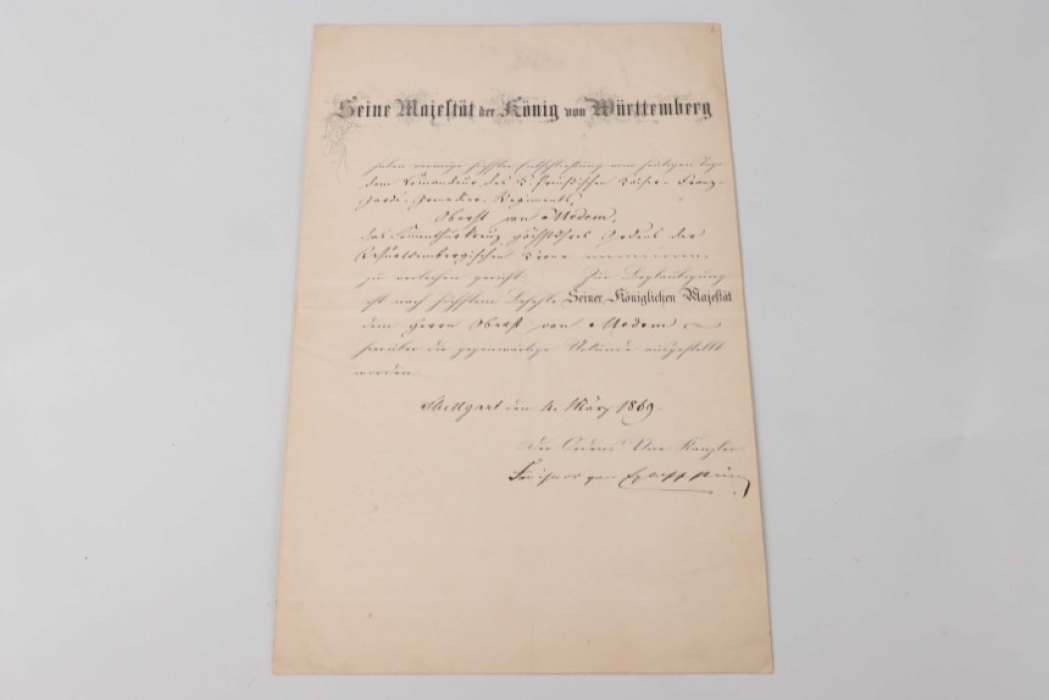 Seine Majestät der König von Württemberg
haben vermöge höchster Entschließung vom heutigen Tage
dem Commandeur des K. Preußischen Kaiser-Franz-
Garde-Grenadier-Regiments,
Oberst von
das Commenthurkreuz Höchstihres Ordens der
Württembergischen Krone
zu verleihen geruht. Zur Beglaubigung
ist nach höchstem Befehle Seiner Königlichen Majestät
dem Herrn Oberst von
hierüber die gegenwärtige Urkunde ausgestellt
worden.
Stuttgart den 4. März 1869.
Der Ordens Vice Kanzler
Freiherr von